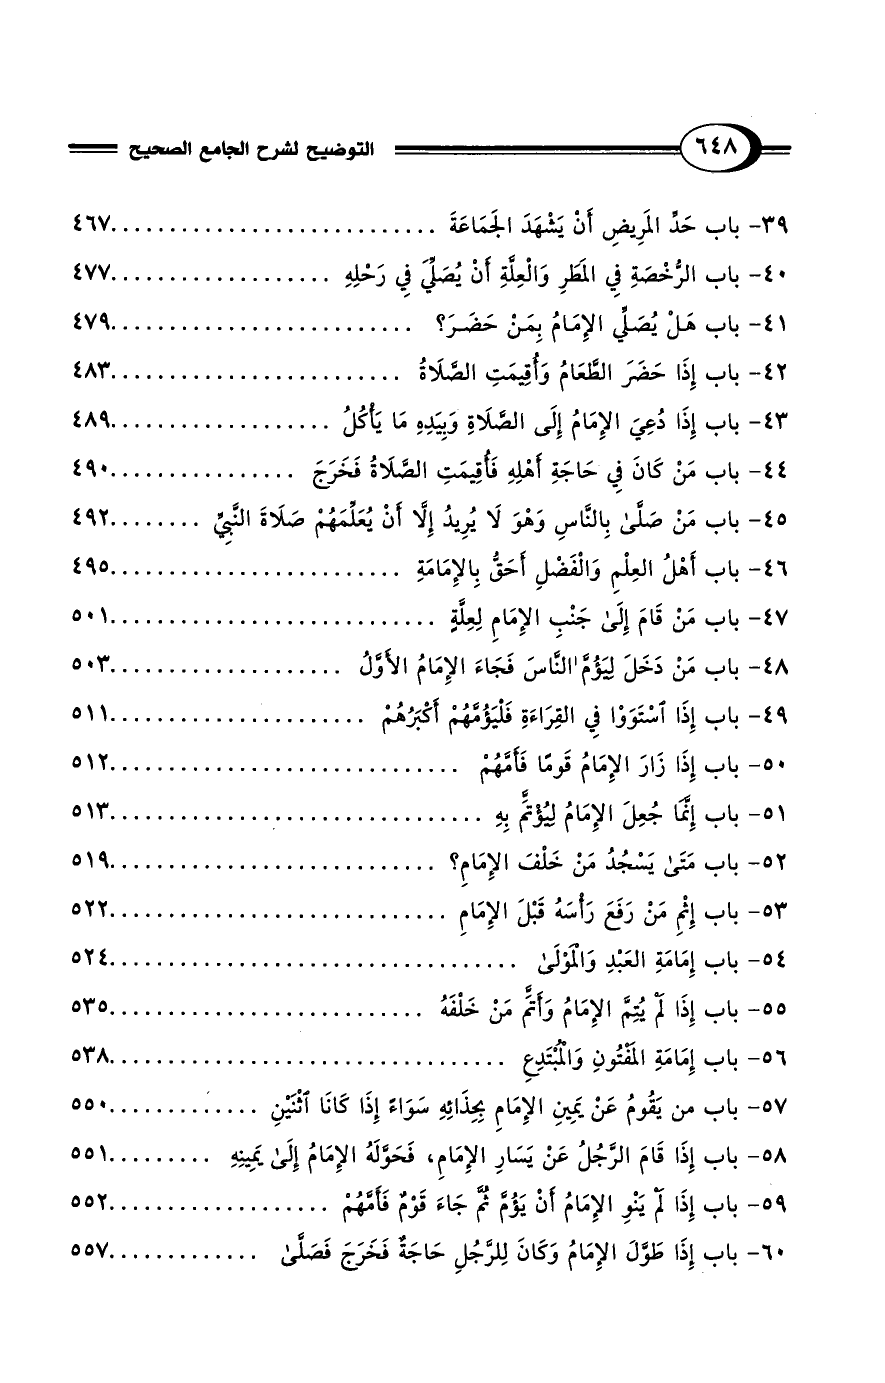 ٦٤٨ التوضيح لشرح الجامع الصحيح
٣٩- باب حَدِّ المَرِيضِ أَنْ يَشْهَدَ الجَمَاعَةَ ............................ ٤٦٧
٤٠- باب الرُّخْصَةِ فِي المَطَرِ وَالْعِلَّةِ أَنْ يُصَلِّيَ فِي رَحْلِهِ ................... ٤٧٧
٤١- باب هَلْ يُصَلِّي الإِمَامُ بِمَنْ حَضَرَ؟ .......................... ٤٧٩
٤٢- باب إِذَا حَضَرَ الطَّعَامُ وَأُقِيمَتِ الصَّلَاةُ ......................... ٤٨٣
٤٣- باب إِذَا دُعِيَ الإِمَامُ إِلَى الصَّلَاةِ وَبِيَدِهِ مَا يَأْكُلُ ................... ٤٨٩
٤٤- باب مَنْ كَانَ فِي حَاجَةِ أَهْلِهِ فَأُقِيمَتِ الصَّلَاةُ فَخَرَجَ ................ ٤٩٠
٤٥- باب مَنْ صَلَّىٰ بِالنَّاسِ وَهْوَ لَا يُرِيدُ إِلَّا أَنْ يُعَلِّمَهُمْ صَلَاةَ النَّبِيِّ ........ ٤٩٢
٤٦- باب أَهْلُ العِلْمِ وَالْفَضْلِ أَحَقُّ بِالإِمَامَةِ ......................... ٤٩٥
٤٧- باب مَنْ قَامَ إِلَىٰ جَنْبِ الإِمَامِ لِعِلَّةٍ ............................ ٥٠١
٤٨- باب مَنْ دَخَلَ لِيَؤُمَّ النَّاسَ فَجَاءَ الإِمَامُ الأَوَّلُ ................... ٥٠٣
٤٩- باب إِذَا ٱسْتَوَوْا فِي القِرَاءَةِ فَلْيَؤُمَّهُمْ أَكْبَرُهُمْ ...................... ٥١١
٥٠- باب إِذَا زَارَ الإِمَامُ قَومًا فَأَمَّهُمْ .............................. ٥١٢
٥١- باب إِنَّمَا جُعِلَ الإِمَامُ لِيُؤْتَمَّ بِهِ ................................ ٥١٣
٥٢- باب مَتَىٰ يَسْجُدُ مَنْ خَلْفَ الإِمَامِ؟ ............................ ٥١٩
٥٣- باب إِثْمِ مَنْ رَفَعَ رَأْسَهُ قَبْلَ الإِمَامِ ............................. ٥٢٢
٥٤- باب إِمَامَةِ العَبْدِ وَالْمَوْلَىٰ ................................... ٥٢٤
٥٥- باب إِذَا لَمْ يُتِمَّ الإِمَامُ وَأَتَمَّ مَنْ خَلْفَهُ ........................... ٥٣٥
٥٦- باب إِمَامَةِ المَفْتُونِ وَالْمُبْتَدِعِ .................................. ٥٣٨
٥٧- باب من يَقُومُ عَنْ يَمِينِ الإِمَامِ بِحِذَائِهِ سَوَاءً إِذَا كَانَا ٱثْنَيْنِ ............. ٥٥٠
٥٨- باب إِذَا قَامَ الرَّجُلُ عَنْ يَسَارِ الإِمَامِ، فَحَوَّلَهُ الإِمَامُ إِلَىٰ يَمِينِهِ ......... ٥٥١
٥٩- باب إِذَا لَمْ يَنْوِ الإِمَامُ أَنْ يَؤُمَّ ثُمَّ جَاءَ قَوْمٌ فَأَمَّهُمْ ................... ٥٥٢
٦٠- باب إِذَا طَوَّلَ الإِمَامُ وَكَانَ لِلرَّجُلِ حَاجَةٌ فَخَرَجَ فَصَلَّىٰ ............. ٥٥٧